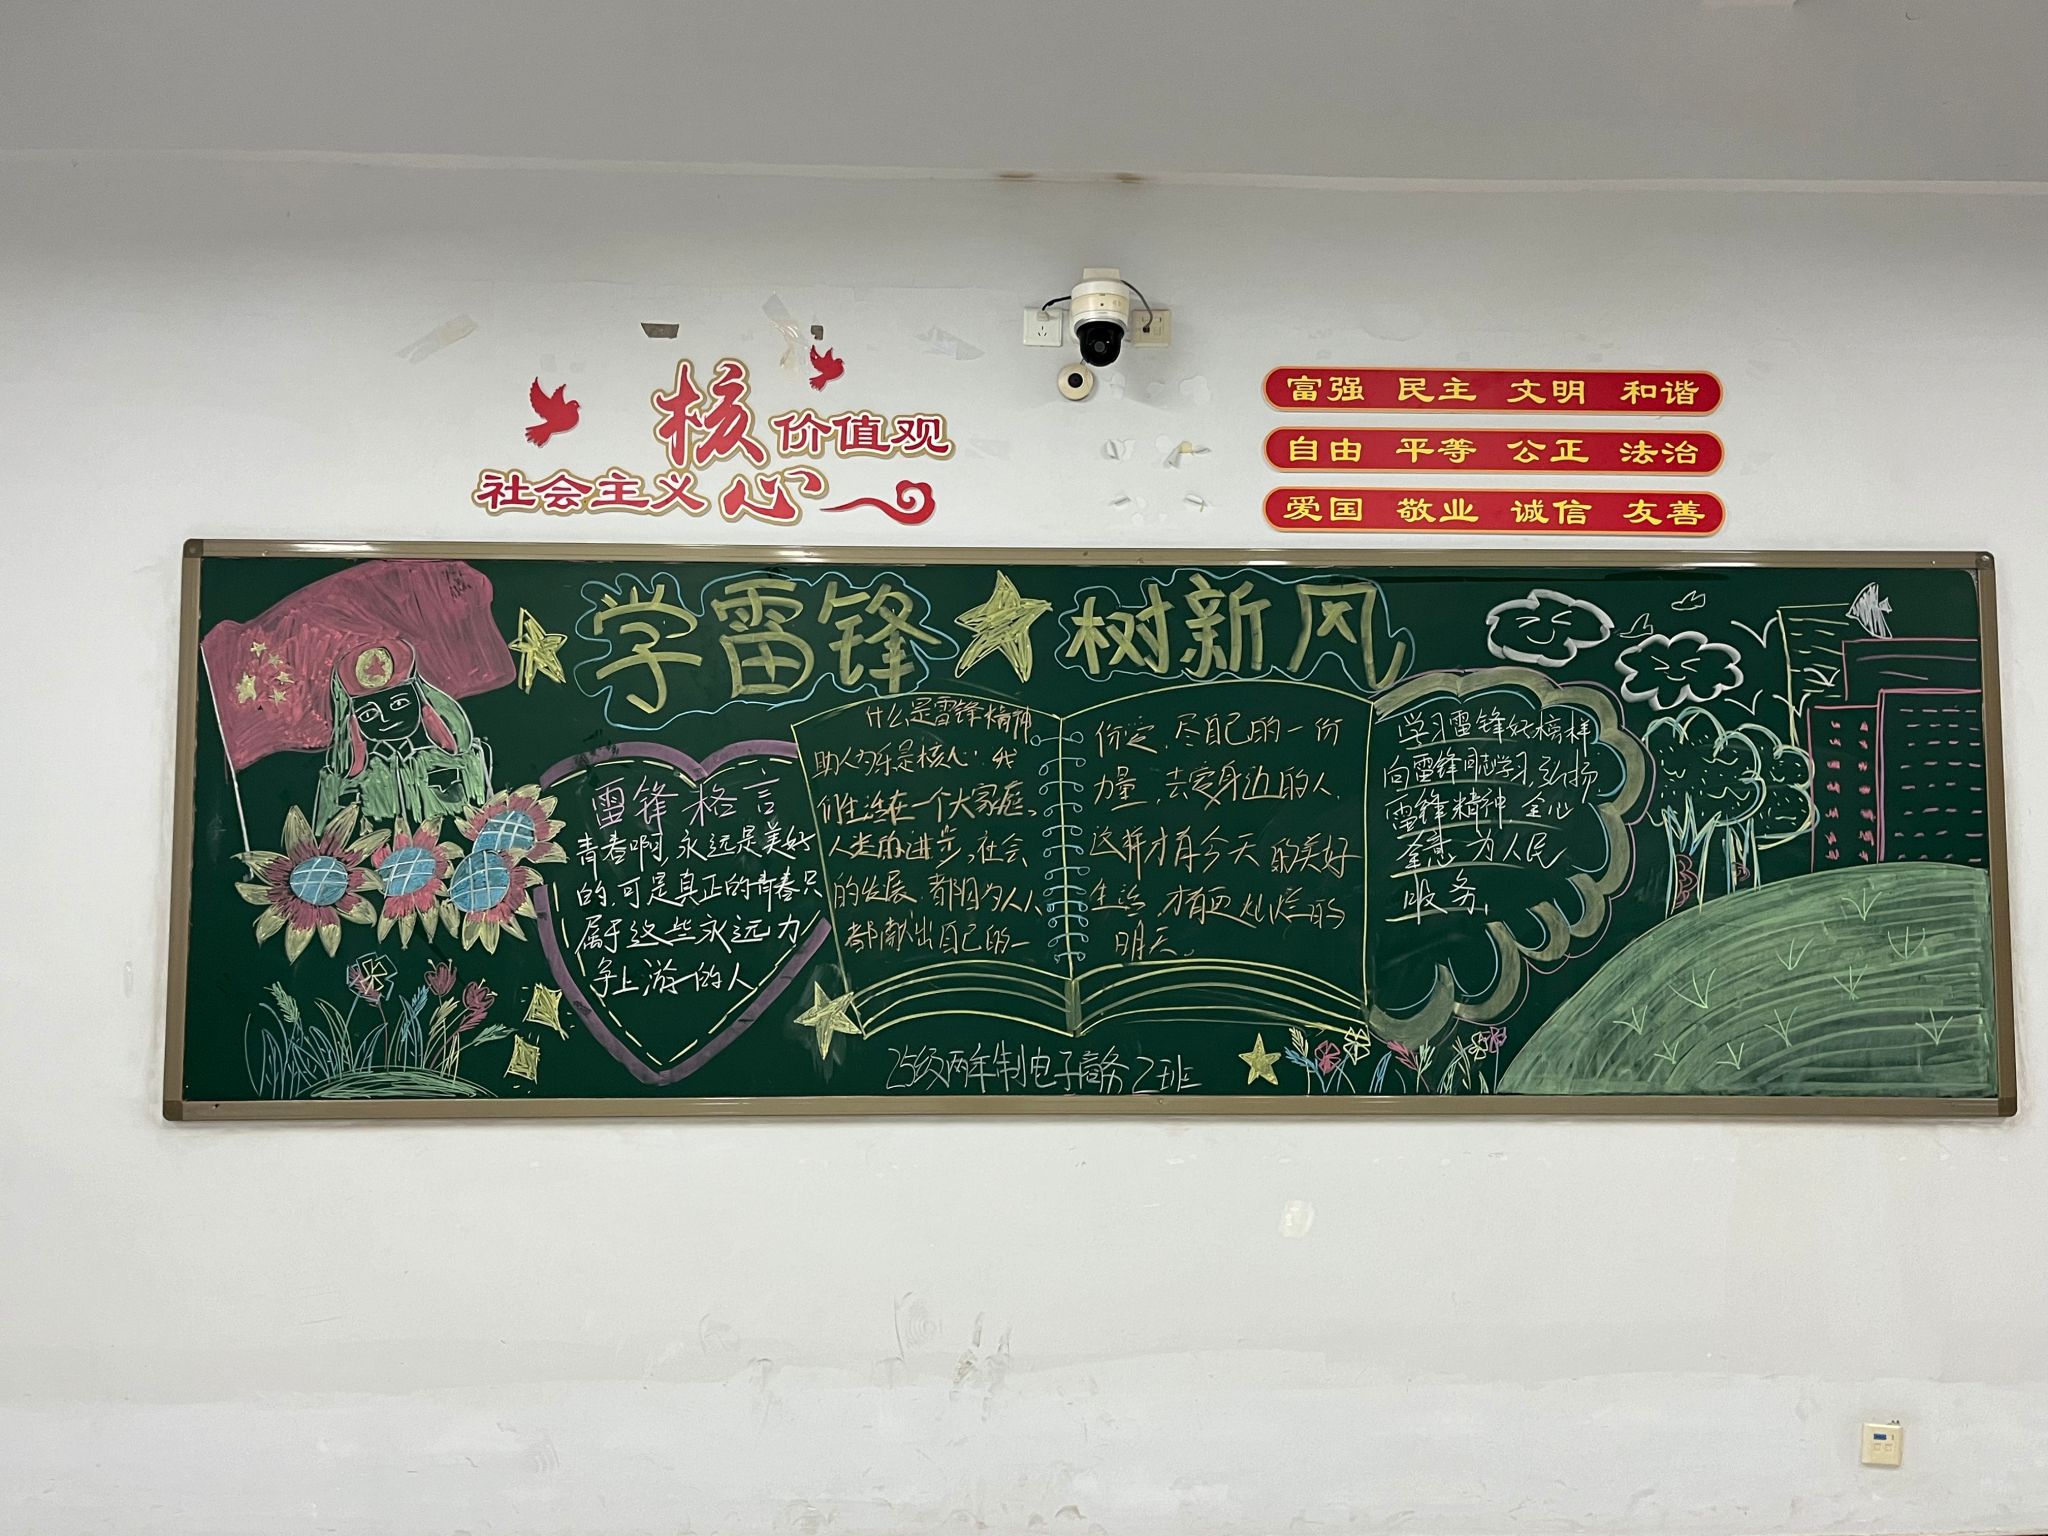 核心价值观
社会主义
富强 民主 文明 和谐
自由 平等 公正 法治
爱国 敬业 诚信 友善
学雷锋 树新风
雷锋格言
青春啊,永远是美好
的,可是真正的青春只
属于这些永远力
争上游的人
什么是雷锋精神
助人为乐是核心:我
们生活在一个大家庭,
人类的进步,社会
的发展,都因为人人
都献出自己的一
份爱,尽自己的一份
力量,去爱身边的人,
这样才有今天的美好
生活,才有更灿烂的
明天。
学习雷锋好榜样
向雷锋同志学习,弘扬
雷锋精神 全心
全意为人民
服务,
25级两年制电子商务2班